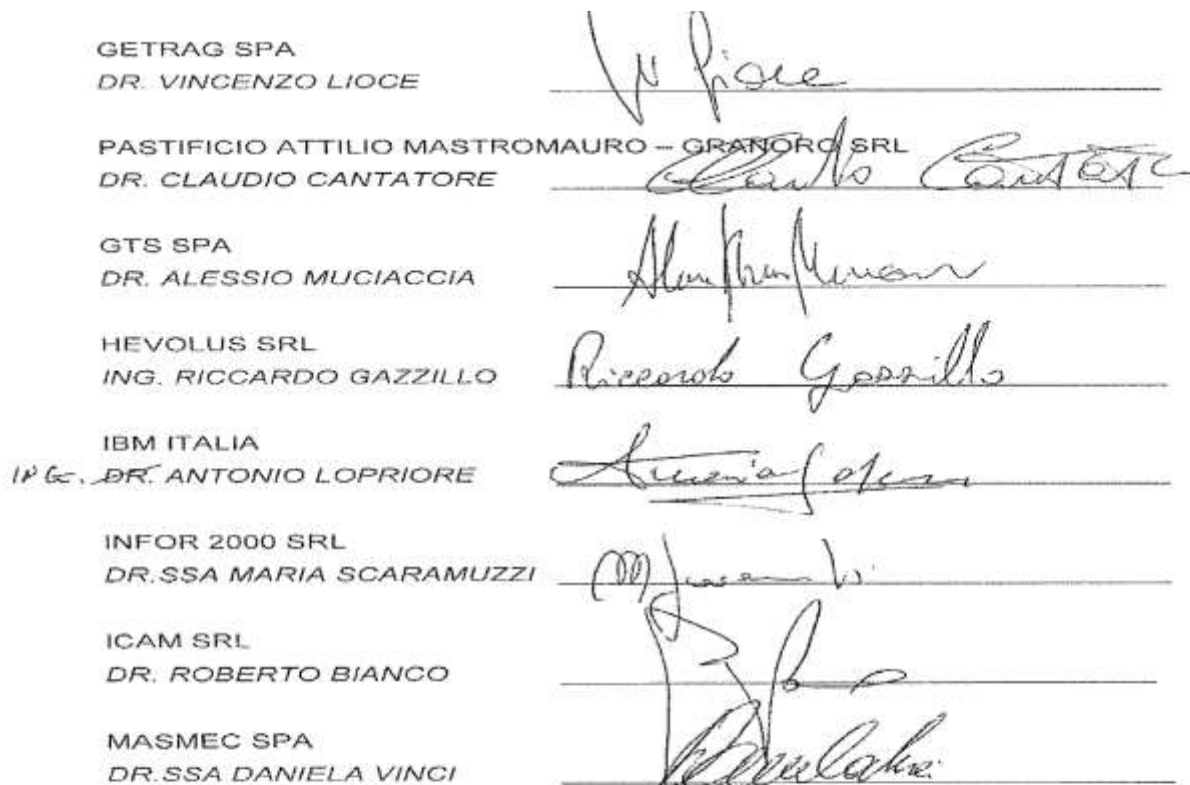 GETRAG SPA
DR. VINCENZO LIOCE
PASTIFICIO ATTILIO MASTROMAURO – GRANORO SRL
DR. CLAUDIO CANTATORE
GTS SPA
DR. ALESSIO MUCIACCIA
HEVOLUS SRL
ING. RICCARDO GAZZILLO Riccardo Gazzillo
IBM ITALIA
ING. DR. ANTONIO LOPRIORE
INFOR 2000 SRL
DR.SSA MARIA SCARAMUZZI
ICAM SRL
DR. ROBERTO BIANCO
MASMEC SPA
DR.SSA DANIELA VINCI